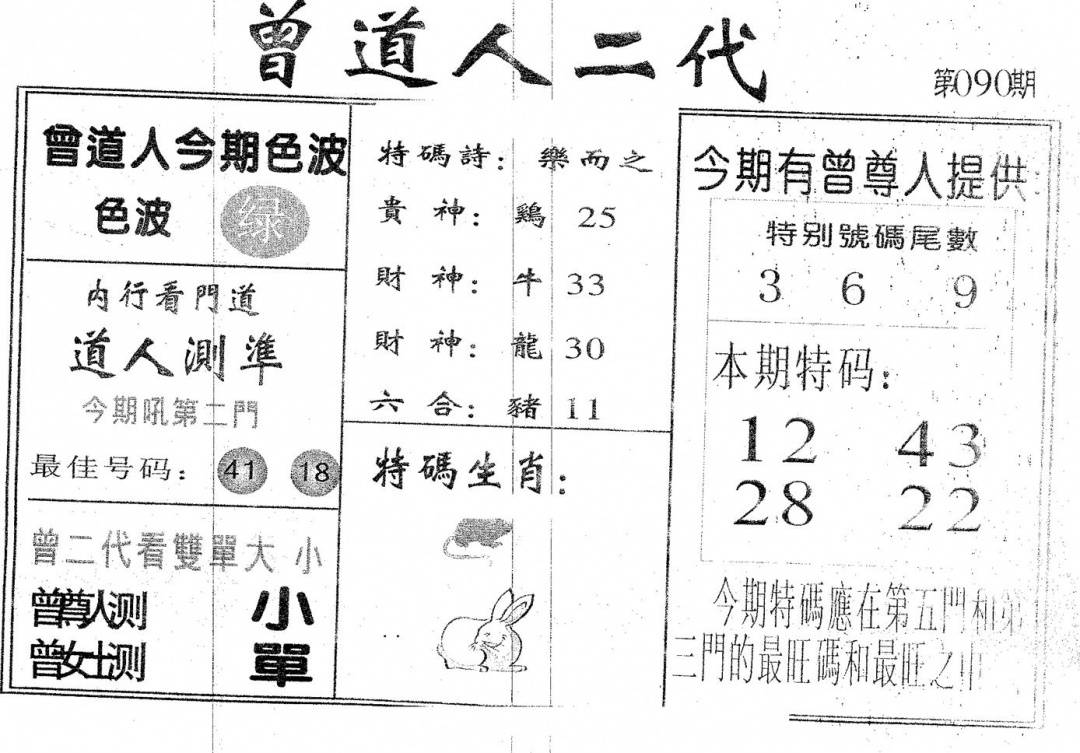 曾道人二代
第090期
曾道人今期色波
色波 绿
内行看門道
道人測準
今期吼第二門
最佳号码： 41 18
曾二代看雙單大 小
曾尊人测 小
曾女士测 單
特碼詩：樂而之
貴神：鷄 25
財神：牛 33
財神：龍 30
六合：豬 11
特碼生肖：
今期有曾尊人提供
特别號碼尾數
3 6 9
本期特码：
12 43
28 22
今期特碼應在第五門和第
三門的最旺碼和最旺之中